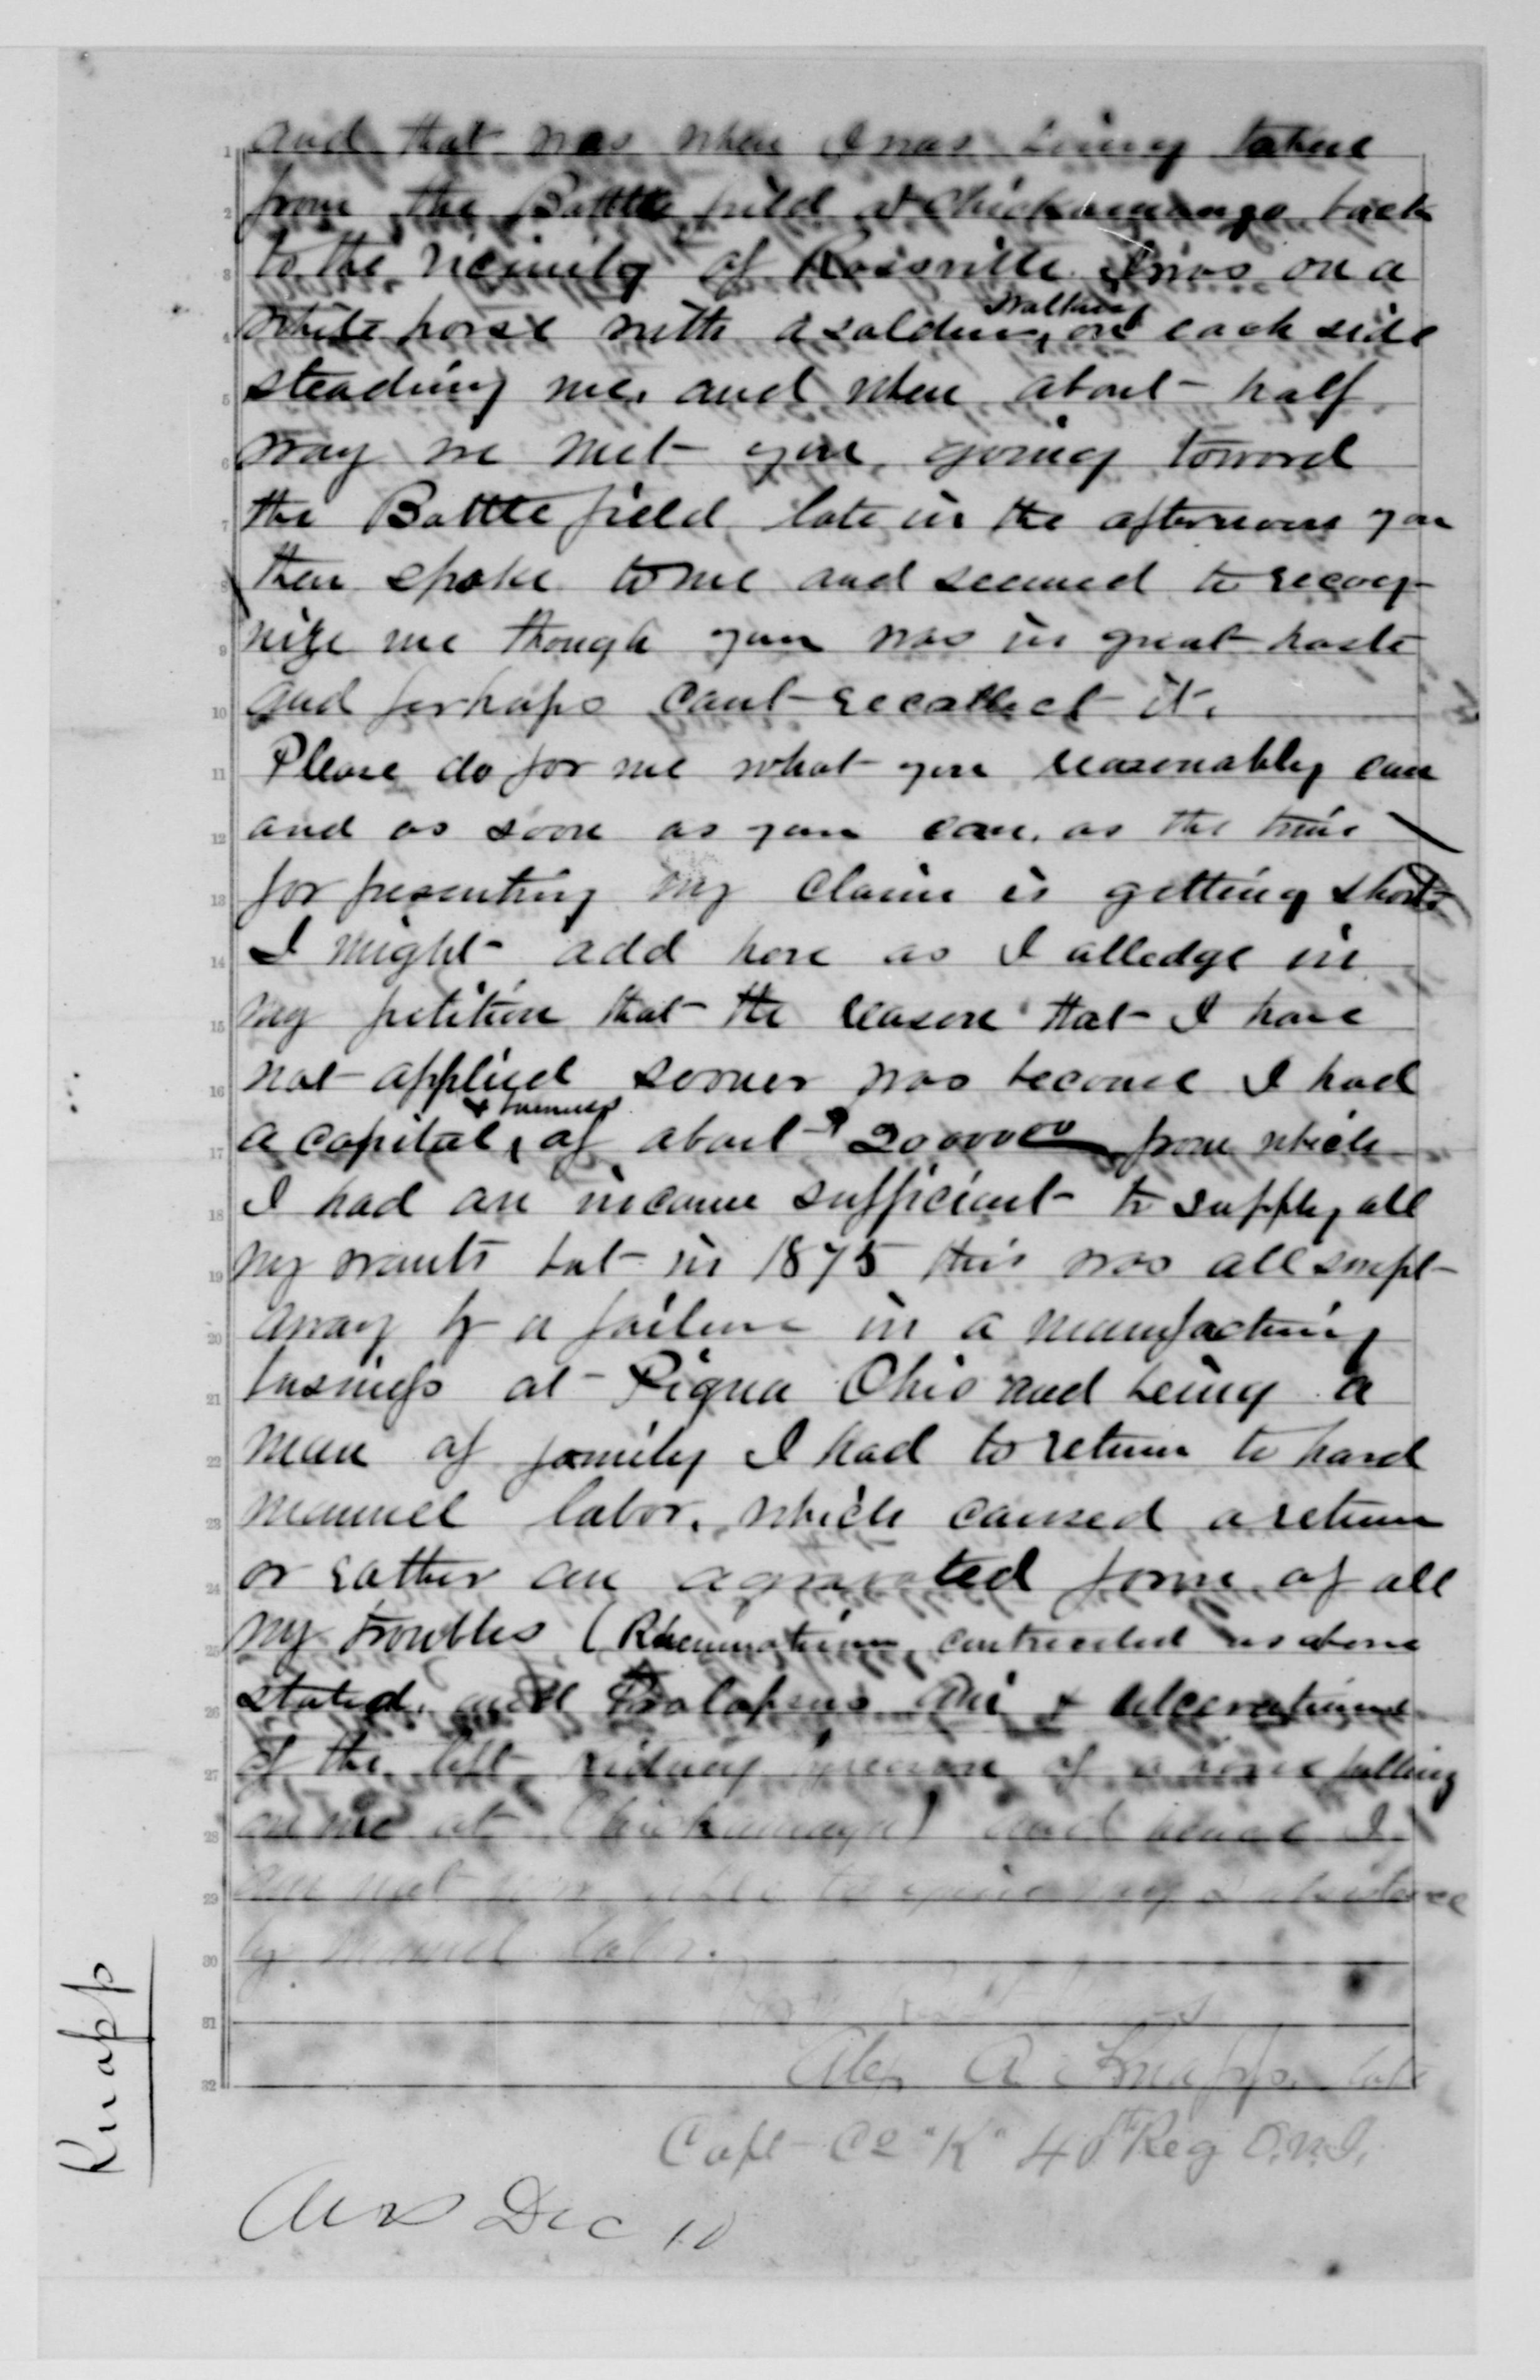 and that was when I was being taken
from the Battle field at Chickamauga back
to the vicinity of Rossville. I was on a
white horse with a soldier, walking on each side
steading me. and when about half
way we met you, going toward
the Battle field late in the afternoon you
then spoke to me and seemed to recog-
nize me though you was in great haste
and perhaps cant recollect it.
Please do for me what you reasonably can
and as soon as you can, as the time
for presenting my claim is getting short
I might add here as I alledge in
my petition that the reason that I have
not applied sooner was because I had
a capital, & business of about $20000.00 from which
I had an income sufficient to supply all
my wants but in 1875 this was all swept
away by a failure in a manufacturing
business at Piqua Ohio and being a
man of family I had to return to hard
manuel labor, which caused a return
or rather an agravated form of all
my troubles (Rheumatism, contracted as above
stated, and Prolapsus Ani & ulceration
of the left kidney by reason of a horse falling
on me at Chickamauga) and hence I
am not now able to gain my subsistence
by manuel labor.
Alex A. Knapp, late
Capt Co "K" 40th Reg O.V.I.
Ans Dec 10
Knapp